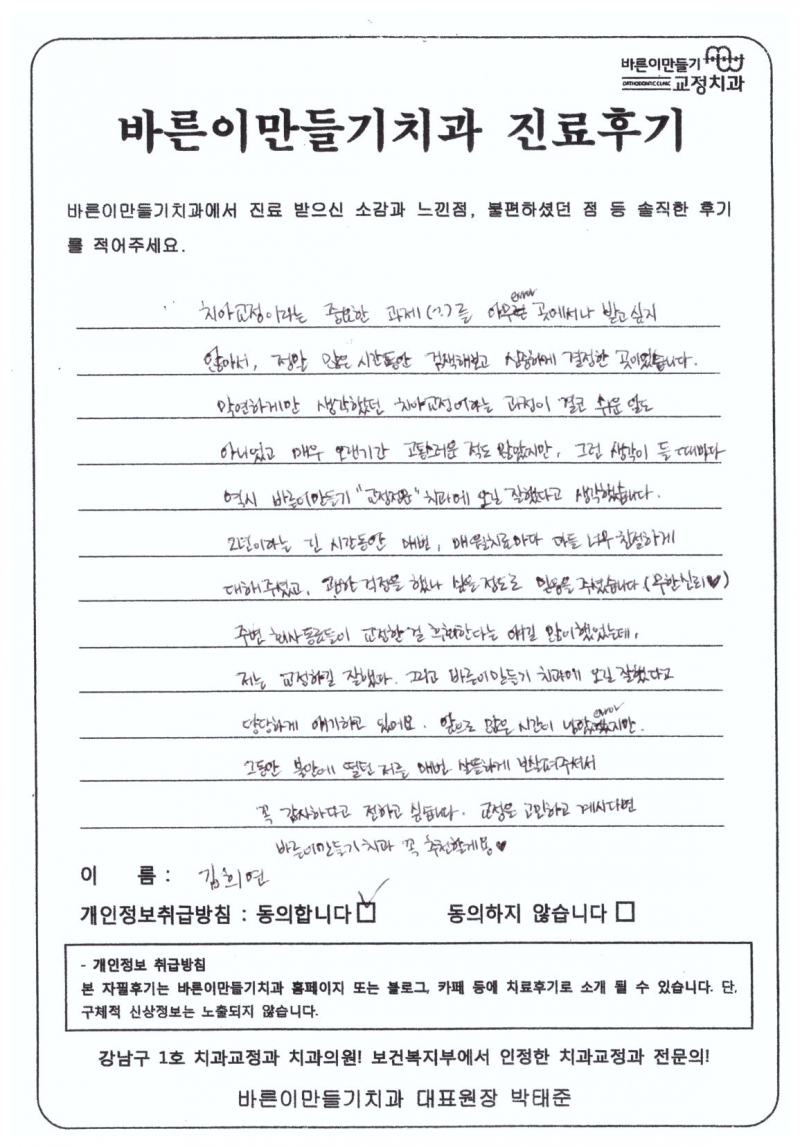 바른이만들기
ORTHODONTIC CLINIC 교정치과
바른이만들기치과 진료후기
바른이만들기치과에서 진료 받으신 소감과 느낀점, 불편하셨던 점 등 솔직한 후기
를 적어주세요.
치아교정이라는 중요한 과제(?)를 아무런 곳에서나 받고싶지
error
않아서, 정말 많은 시간동안 검색해보고 심중하게 결정한 곳이었습니다.
막연하게만 생각했던 치아교정이라는 과정이 결코 쉬운 일도
아니었고 매우 오랜기간 고통스러운 적도 많았지만, 그런 생각이 들 때마다
역시 바른이만들기 "교정전문" 치과에 오길 잘했다고 생각했습니다.
2년이라는 긴 시간동안 매번, 매월치료마다 다들 너무 친절하게
대해주셨고, 괜한 걱정을 했나 싶을 정도로 믿음을 주셨습니다 (무한신뢰♥)
주변 회사동료들이 교정한걸 후회한다는 얘길 많이했었는데,
저는 교정하길 잘했다. 그리고 바른이만들기 치과에 오길 잘했다고
당당하게 얘기하고 있어요. 앞으로 많은 시간이 남았지만.
error
그동안 불안에 떨던 저를 매번 살뜰하게 보살펴주셔서
꼭 감사하다고 전하고 싶습니다. 교정을 고민하고 계시다면
바른이만들기치과 꼭 추천할게용♥
이 름 : 김희연
개인정보취급방침 : 동의합니다 ☑ 동의하지 않습니다 □
- 개인정보 취급방침
본 자필후기는 바른이만들기치과 홈페이지 또는 블로그, 카페 등에 치료후기로 소개 될 수 있습니다. 단,
구체적 신상정보는 노출되지 않습니다.
강남구 1호 치과교정과 치과의원! 보건복지부에서 인정한 치과교정과 전문의!
바른이만들기치과 대표원장 박태준